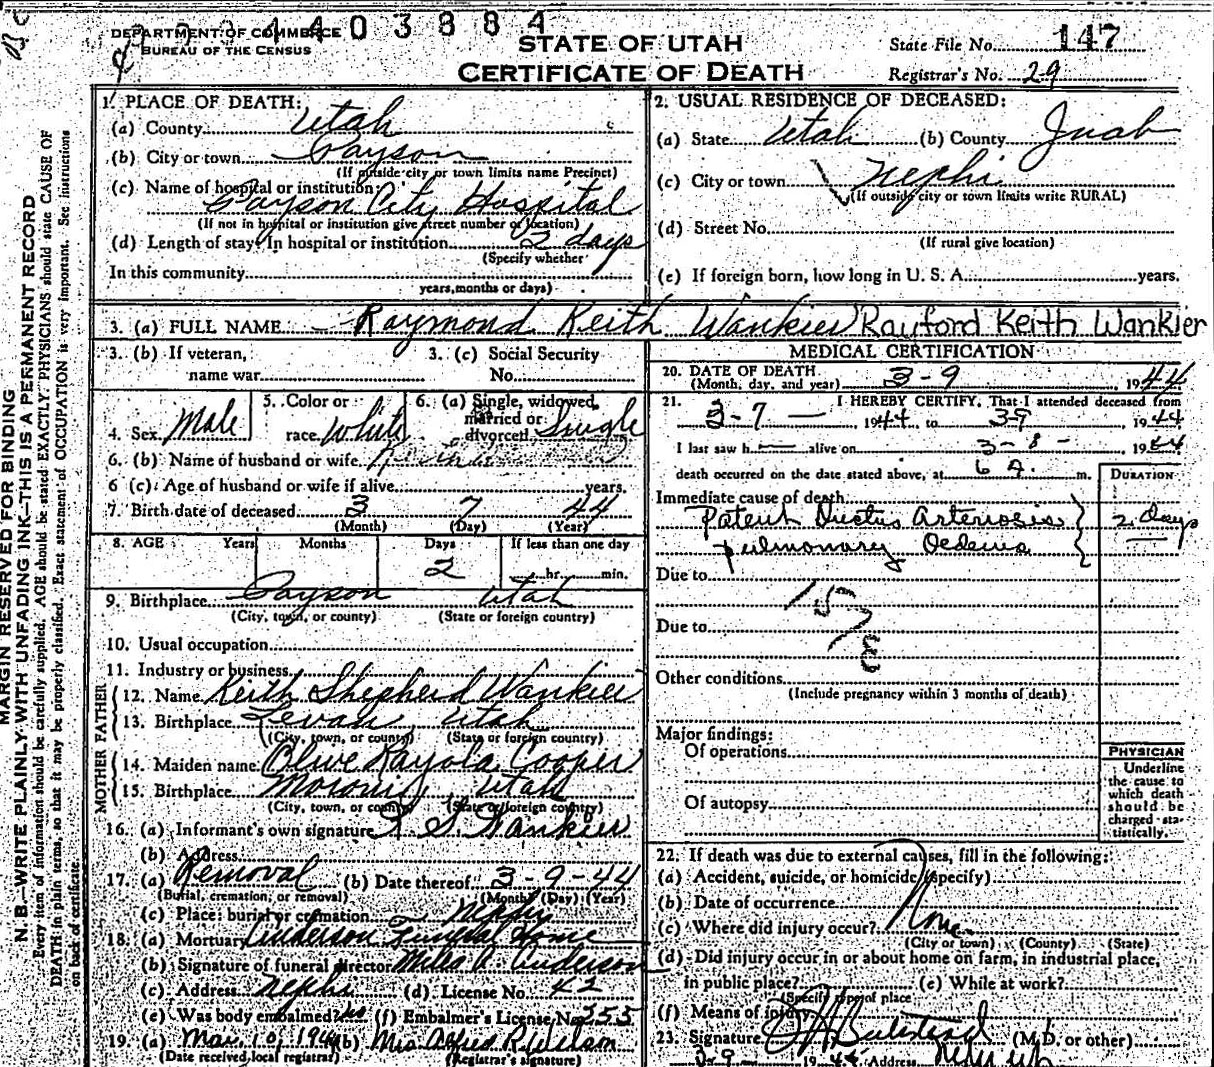 4403884
DEPARTMENT OF COMMERCE
BUREAU OF THE CENSUS
STATE OF UTAH
CERTIFICATE OF DEATH
State File No. 147
Registrar's No. 29
MARGIN RESERVED FOR BINDING
N. B.—WRITE PLAINLY WITH UNFADING INK—THIS IS A PERMANENT RECORD
Every item of information should be carefully supplied. AGE should be stated EXACTLY. PHYSICIANS should state CAUSE OF
DEATH in plain terms, so that it may be properly classified. Exact statement of OCCUPATION is very important. See instructions
on back of certificate.
1. PLACE OF DEATH:
(a) County Utah
(b) City or town Payson
(If outside city or town limits name Precinct)
(c) Name of hospital or institution:
Payson City Hospital
(If not in hospital or institution give street number or location)
(d) Length of stay: In hospital or institution 2 days
(Specify whether
In this community
years, months or days)
2. USUAL RESIDENCE OF DECEASED:
(a) State Utah (b) County Juab
(c) City or town Nephi
(If outside city or town limits write RURAL)
(d) Street No.
(If rural give location)
(e) If foreign born, how long in U. S. A. years.
3. (a) FULL NAME Raymond Keith Wankier Rayford Keith Wankier
3. (b) If veteran,
name war
3. (c) Social Security
No.
4. Sex Male
5. Color or
race White
6. (a) Single, widowed,
married or
divorced Single
6. (b) Name of husband or wife
6 (c). Age of husband or wife if alive years.
7. Birth date of deceased 3 7 44
(Month) (Day) (Year)
8. AGE Years Months Days If less than one day
2 hr. min.
9. Birthplace Payson Utah
(City, town, or county) (State or foreign country)
10. Usual occupation
11. Industry or business
FATHER
12. Name Keith Shepherd Wankier
13. Birthplace Levan, Utah
(City, town, or county) (State or foreign country)
MOTHER
14. Maiden name Olive Rayola Cooper
15. Birthplace Moroni, Utah
(City, town, or county) (State or foreign country)
16. (a) Informant's own signature K S. Wankier
(b) Address
17. (a) Removal (b) Date thereof 3-9-44
(Burial, cremation, or removal) (Month) (Day) (Year)
(c) Place: burial or cremation Nephi
18. (a) Mortuary Anderson Funeral Home
(b) Signature of funeral director Miles A. Anderson
(c) Address Nephi (d) License No. 42
(e) Was body embalmed? no (f) Embalmer's License No. 353
19. (a) Mar. 10, 1944 (b) Mrs Alfred R.
(Date received local registrar) (Registrar's signature)
MEDICAL CERTIFICATION
20. DATE OF DEATH
(Month, day, and year) 3-9 1944
21. I HEREBY CERTIFY, That I attended deceased from
3-7 — 1944, to 3-9 1944
I last saw h— alive on 3-8- 1944
death occurred on the date stated above, at 6 A. m.
DURATION
Immediate cause of death
Patent Ductus Arteriosis 2 days
pulmonary Oedema —
Due to
157 E
Due to
Other conditions
(Include pregnancy within 3 months of death)
Major findings:
Of operations
Of autopsy
PHYSICIAN
Underline
the cause to
which death
should be
charged sta-
tistically.
22. If death was due to external causes, fill in the following:
(a) Accident, suicide, or homicide (specify)
(b) Date of occurrence
None
(c) Where did injury occur?
(City or town) (County) (State)
(d) Did injury occur in or about home on farm, in industrial place,
in public place? (e) While at work?
(Specify type of place
(f) Means of injury
23. Signature (M.D. or other)
3-9- 1944 Address